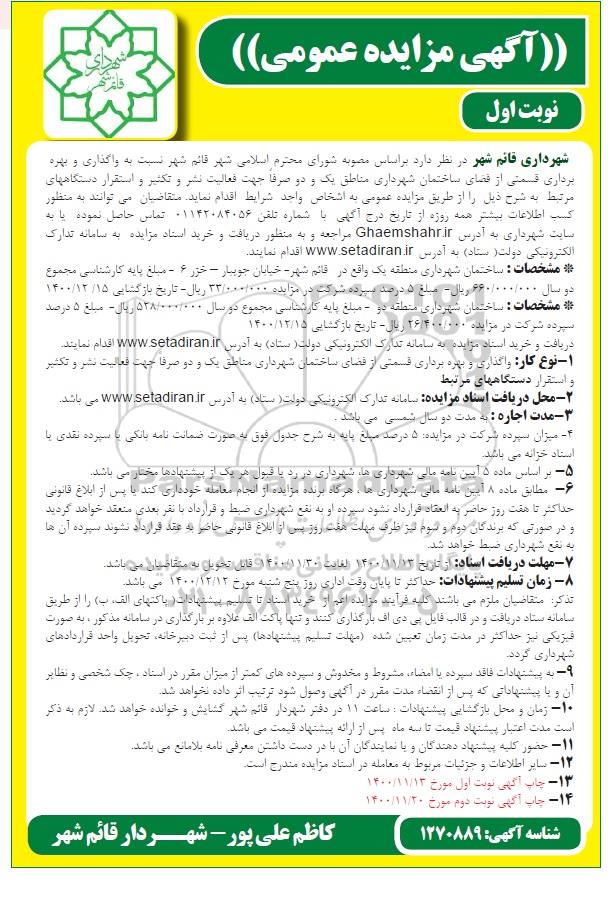 شهرداری قائم شهر
((آگهی مزایده عمومی))
نوبت اول
شهرداری قائم شهر در نظر دارد براساس مصوبه شورای محترم اسلامی شهر قائم شهر نسبت به واگذاری و بهره
برداری قسمتی از فضای ساختمان شهرداری مناطق یک و دو صرفاً جهت فعالیت نشر و تکثیر و استقرار دستگاههای
مرتبط به شرح ذیل را از طریق مزایده عمومی به اشخاص واجد شرایط اقدام نماید. متقاضیان می توانند به منظور
کسب اطلاعات بیشتر همه روزه از تاریخ درج آگهی با شماره تلفن ۰۱۱۴۲۰۸۴۰۵۶ تماس حاصل نموده یا به
سایت شهرداری به آدرس Ghaemshahr.ir مراجعه و به منظور دریافت و خرید اسناد مزایده به سامانه تدارک
الکترونیکی دولت( ستاد) به آدرس www.setadiran.ir اقدام نمایند.
※ مشخصات : ساختمان شهرداری منطقه یک واقع در قائم شهر- خیابان جویبار – خزر ۶ - مبلغ پایه کارشناسی مجموع
دو سال ۶۶۰/۰۰۰/۰۰۰ ریال- مبلغ ۵ درصد سپرده شرکت در مزایده ۳۳/۰۰۰/۰۰۰ ریال- تاریخ بازگشایی ۱۵/ ۱۴۰۰/۱۲
※ مشخصات : ساختمان شهرداری منطقه دو - مبلغ پایه کارشناسی مجموع دو سال ۵۲۸/۰۰۰/۰۰۰ ریال- مبلغ ۵ درصد
سپرده شرکت در مزایده ۲۶/۴۰۰/۰۰۰ ریال- تاریخ بازگشایی ۱۴۰۰/۱۲/۱۵
دریافت و خرید اسناد مزایده به سامانه تدارک الکترونیکی دولت( ستاد) به آدرس www.setadiran.ir اقدام نمایند.
۱-نوع کار: واگذاری و بهره برداری قسمتی از فضای ساختمان شهرداری مناطق یک و دو صرفا جهت فعالیت نشر و تکثیر
و استقرار دستگاههای مرتبط
۲-محل دریافت اسناد مزایده: سامانه تدارک الکترونیکی دولت( ستاد) به آدرس www.setadiran.ir می باشد.
۳-مدت اجاره : به مدت دو سال شمسی می باشد .
۴- میزان سپرده شرکت در مزایده: ۵ درصد مبلغ پایه به شرح جدول فوق به صورت ضمانت نامه بانکی یا سپرده نقدی یا
اسناد خزانه می باشد.
۵- بر اساس ماده ۵ آیین نامه مالی شهرداری ها، شهرداری در رد یا قبول هر یک از پیشنهادها مختار می باشد.
۶- مطابق ماده ۸ آیین نامه مالی شهرداری ها ، هرگاه برنده مزایده از انجام معامله خودداری کند یا پس از ابلاغ قانونی
حداکثر تا هفت روز حاضر به انعقاد قرارداد نشود سپرده او به نفع شهرداری ضبط و قرارداد با نفر بعدی منعقد خواهد گردید
و در صورتی که برندگان دوم و سوم نیز ظرف مهلت هفت روز پس از ابلاغ قانونی حاضر به عقد قرارداد نشوند سپرده آن ها
به نفع شهرداری ضبط خواهد شد.
۷-مهلت دریافت اسناد: از تاریخ ۱۴۰۰/۱۱/۱۳ لغایت ۱۴۰۰/۱۱/۳۰ قابل تحویل به متقاضیان می باشد.
۸- زمان تسلیم پیشنهادات: حداکثر تا پایان وقت اداری روز پنج شنبه مورخ ۱۴۰۰/۱۲/۱۲ می باشد.
تذکر: متقاضیان ملزم می باشند کلیه فرآیند مزایده اعم از خرید اسناد تا تسلیم پیشنهادات( پاکتهای الف، ب) را از طریق
سامانه ستاد دریافت و در قالب فایل پی دی اف بارگذاری کنند و تنها پاکت الف علاوه بر بارگذاری در سامانه مذکور ، به صورت
فیزیکی نیز حداکثر در مدت زمان تعیین شده (مهلت تسلیم پیشنهادها) پس از ثبت دبیرخانه، تحویل واحد قراردادهای
شهرداری گردد.
۹- به پیشنهادات فاقد سپرده یا امضاء، مشروط و مخدوش و سپرده های کمتر از میزان مقرر در اسناد ، چک شخصی و نظایر
آن و یا پیشنهاداتی که پس از انقضاء مدت مقرر در آگهی وصول شود ترتیب اثر داده نخواهد شد.
۱۰- زمان و محل بازگشایی پیشنهادات : ساعت ۱۱ در دفتر شهردار قائم شهر گشایش و خوانده خواهد شد. لازم به ذکر
است مدت اعتبار پیشنهاد قیمت تا سه ماه پس از ارائه پیشنهاد قیمت می باشد.
۱۱- حضور کلیه پیشنهاد دهندگان و یا نمایندگان آن با در دست داشتن معرفی نامه بلامانع می باشد.
۱۲- سایر اطلاعات و جزئیات مربوط به معامله در اسناد مزایده مندرج است.
۱۳- چاپ آگهی نوبت اول مورخ ۱۴۰۰/۱۱/۱۳
۱۴- چاپ آگهی نوبت دوم مورخ ۱۴۰۰/۱۱/۲۰
شناسه آگهی: ۱۲۷۰۸۸۹
کاظم علی پور- شهردار قائم شهر